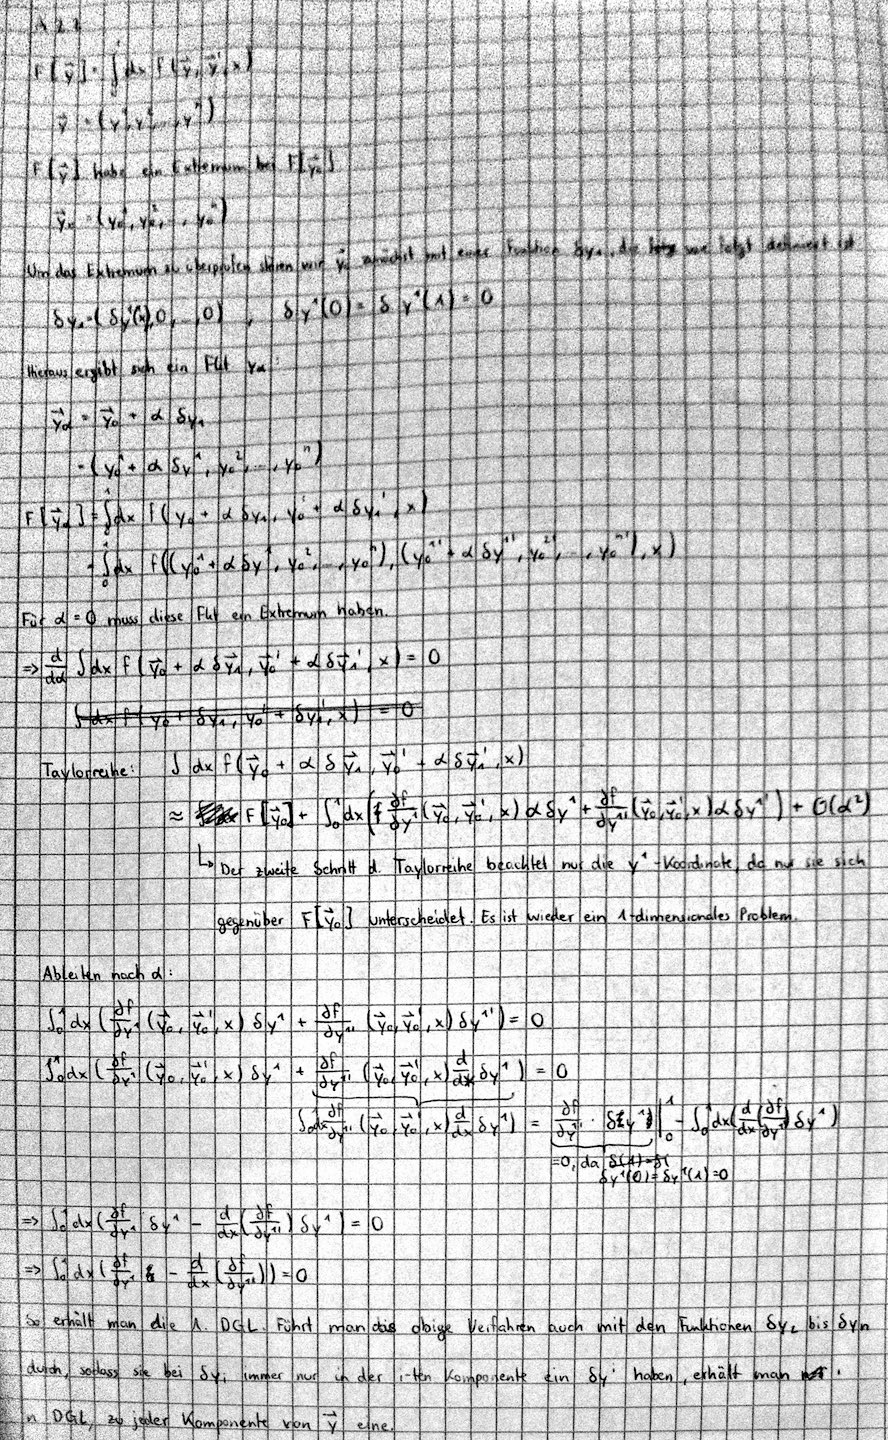 A 2.2
F[y⃗] = ∫₀¹ dx f(y⃗, y⃗', x)
y⃗ = (y¹, y², ..., yⁿ)
F[y⃗] habe ein Extremum bei F[y⃗₀]
y⃗₀ = (y₀¹, y₀², ..., y₀ⁿ)
Um das Extremum zu überprüfen stören wir y⃗₀ zunächst mit einer Funktion δy₁, die wie folgt definiert ist
δy₁ = (δy¹(x), 0, ..., 0) , δy¹(0) = δy¹(1) = 0
Hieraus ergibt sich ein Fkt yα:
y⃗α = y⃗₀ + α δy₁
= (y₀¹ + α δy¹, y₀², ..., y₀ⁿ)
F[y⃗α] = ∫₀¹ dx f(y₀ + α δy₁, y₀' + α δy₁', x)
= ∫₀¹ dx f((y₀¹ + α δy¹, y₀², ..., y₀ⁿ), (y₀¹' + α δy¹', y₀²', ..., y₀ⁿ'), x)
Für α = 0 muss diese Fkt ein Extremum haben.
=> d/dα ∫ dx f(y⃗₀ + α δy⃗₁, y⃗₀' + α δy⃗₁', x) = 0
∫ dx f(y₀ + δy₁, y₀' + δy₁', x) = 0
Taylorreihe: ∫ dx f(y⃗₀ + α δy⃗₁, y⃗₀' + α δy⃗₁', x)
≈ F[y⃗₀] + ∫₀¹ dx (∂f/∂y¹ (y⃗₀, y⃗₀', x) α δy¹ + ∂f/∂y¹' (y⃗₀, y⃗₀', x) α δy¹') + O(α²)
↳ Der zweite Schritt d. Taylorreihe beachtet nur die y¹-Koordinate, da nur sie sich
gegenüber F[y⃗₀] unterscheidet. Es ist wieder ein 1-dimensionales Problem.
Ableiten nach α:
∫₀¹ dx (∂f/∂y¹ (y⃗₀, y⃗₀', x) δy¹ + ∂f/∂y¹' (y⃗₀, y⃗₀', x) δy¹') = 0
∫₀¹ dx (∂f/∂y¹ (y⃗₀, y⃗₀', x) δy¹ + ∂f/∂y¹' (y⃗₀, y⃗₀', x) d/dx δy¹) = 0
∫₀¹ dx ∂f/∂y¹' (y⃗₀, y⃗₀', x) d/dx δy¹) = ∂f/∂y¹' · δy¹ |₀¹ - ∫₀¹ dx (d/dx (∂f/∂y¹') δy¹)
= 0, da δ(1) = δ(
δy¹(0) = δy¹(1) = 0
=> ∫₀¹ dx (∂f/∂y¹ δy¹ - d/dx (∂f/∂y¹') δy¹) = 0
=> ∫₀¹ dx (∂f/∂y¹ - d/dx (∂f/∂y¹')) = 0
So erhält man die 1. DGL. Führt man das obige Verfahren auch mit den Funktionen δy₂ bis δyn
durch, sodass sie bei δyᵢ immer nur in der i-ten Komponente ein δyⁱ haben, erhält man
n DGL, zu jeder Komponente von y⃗ eine.